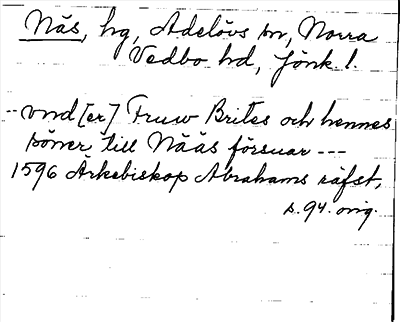 Näs, hg, Adelövs sn, Norra
Vedbo hd, Jönk. l.
-- vnd[er] Fruw Brites och hennes
söner till Nääs försuar ---
1596 Ärkebiskop Abrahams räfst,
s. 94. orig.